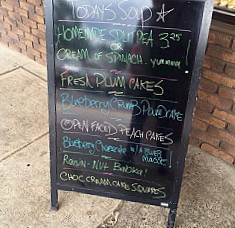 TODAYS SOUP
HOMEMADE SPLIT PEA 3.25
OR
CREAM OF SPINACH. yummm!
FRESH PLUM CAKES
Blueberry Crumb Pound Cake
OPEN FACED PEACH CAKES
Blueberry Cheesecake W/A
Raisin-Nut
CHOC CREAM CAKE SQUARES